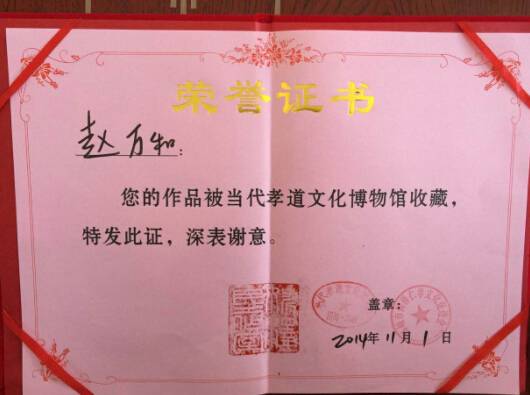 荣誉证书
赵万和：
您的作品被当代孝道文化博物馆收藏，
特发此证，深表谢意。
盖章：
2014年11月1日